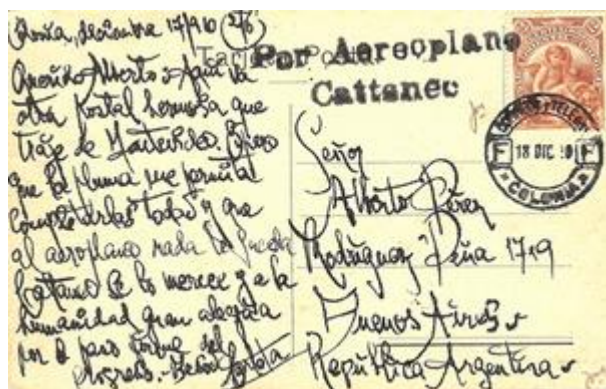 diciembre 17/910
Querido Alberto: Aquí va
otra postal hermosa que
traje de Montevideo.
que la pluma me permita
completarlas todas y que
al aeroplano nada le suceda
Cattaneo se lo merece y a la
humanidad gran alegría
por el paso
progreso.
Por Aereoplano
Cattaneo
CORREOS Y TELEG
F 18 DIC 10 F
COLONIA
Señor
Alberto Pérez
Rodríguez Peña 1719
Buenos Aires
República Argentina